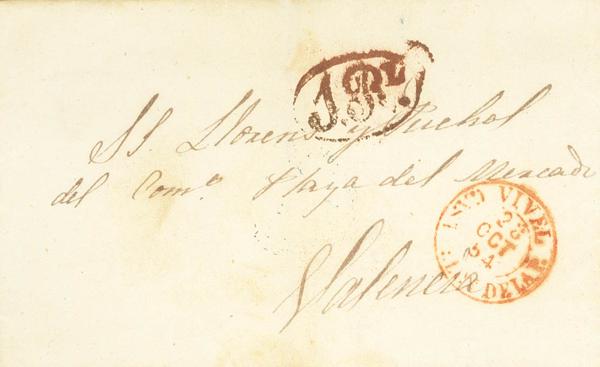 1 Rl.
SS. Llorens y Puchol
del Comº Plaza del Mercado
Valencia
VIVEL
23
OCT